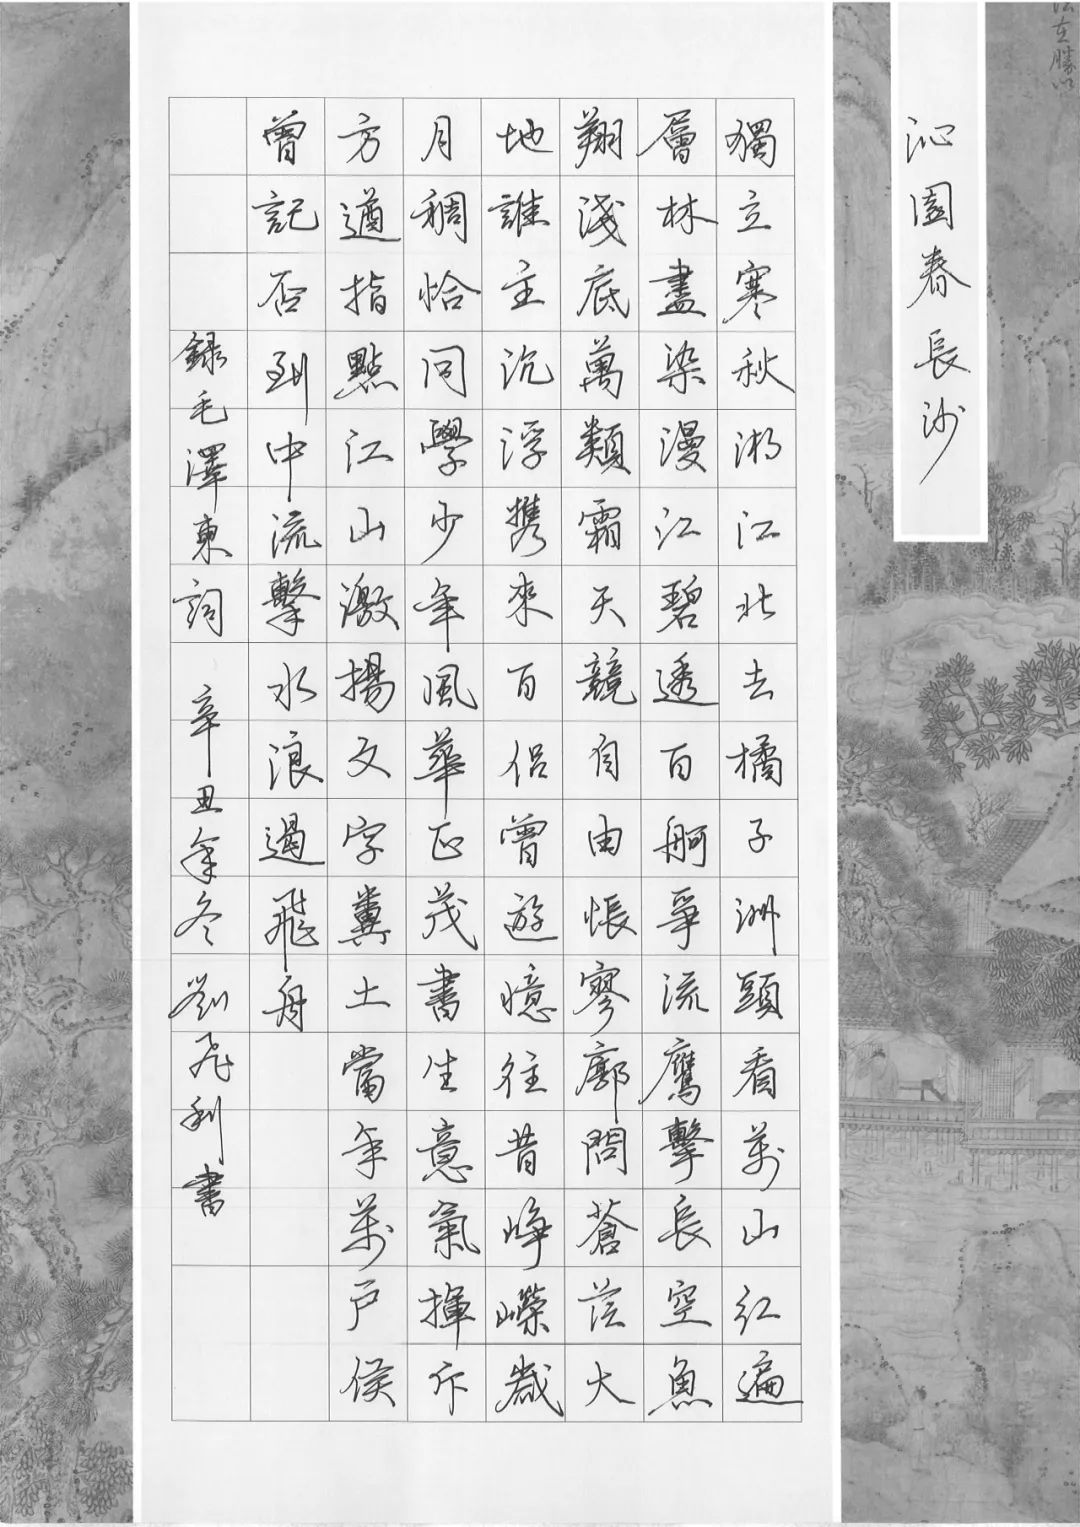 沁園春長沙
獨立寒秋湘江北去橘子洲頭看萬山紅遍
層林盡染漫江碧透百舸爭流鷹擊長空魚
翔淺底萬類霜天競自由悵寥廓問蒼茫大
地誰主沉浮携來百侶曾遊憶往昔崢嶸歲
月稠恰同學少年風華正茂書生意氣揮斥
方遒指點江山激揚文字糞土當年萬戶侯
曾記否到中流擊水浪遏飛舟
錄毛澤東詞 辛丑年冬 劉飛利書